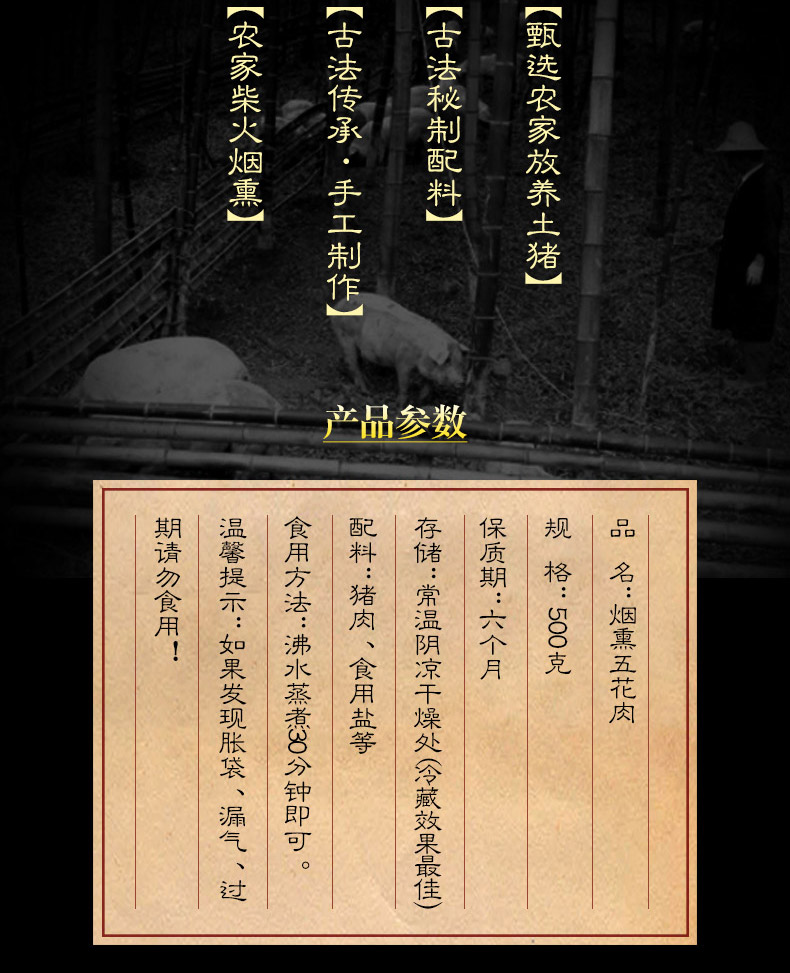 【甄选农家放养土猪】
【古法秘制配料】
【古法传承·手工制作】
【农家柴火烟熏】
产品参数
品 名：烟熏五花肉
规 格：500克
保质期：六个月
存储：常温阴凉干燥处(冷藏效果最佳)
配料：猪肉、食用盐等
食用方法：沸水蒸煮30分钟即可。
温馨提示：如果发现胀袋、漏气、过
期请勿食用！